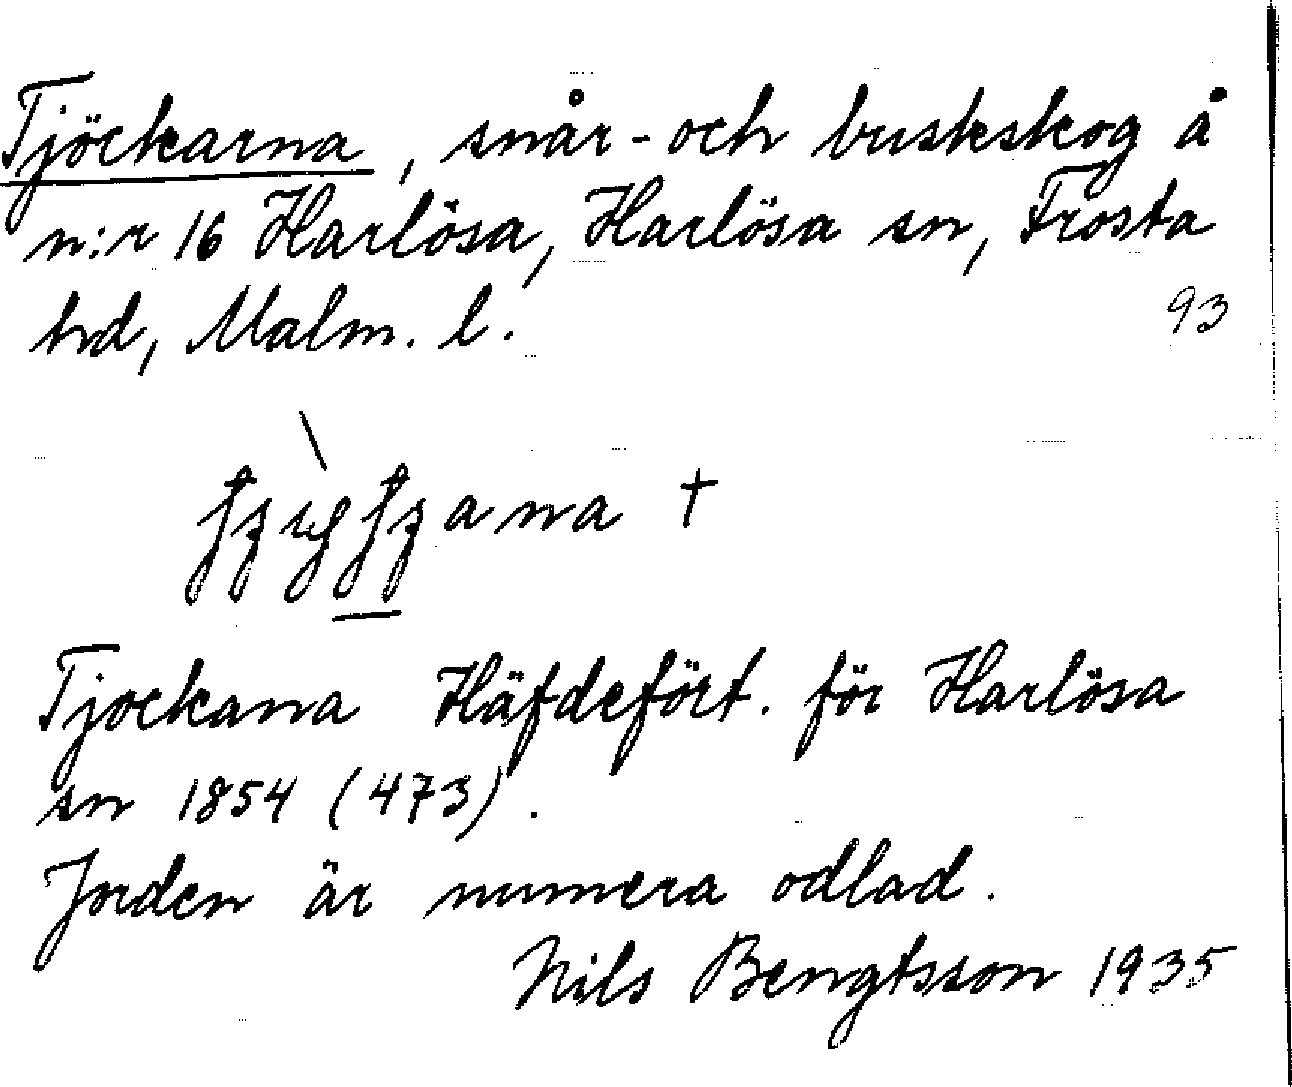 Tjöckarna, snår- och buskskog å
n:r 16 Harlösa, Harlösa sn, Frosta
hd, Malm. l.
93
ana †
Tjockana Häfdefört. för Harlösa
sn 1854 (473).
Jorden är numera odlad.
Nils Bengtsson 1935